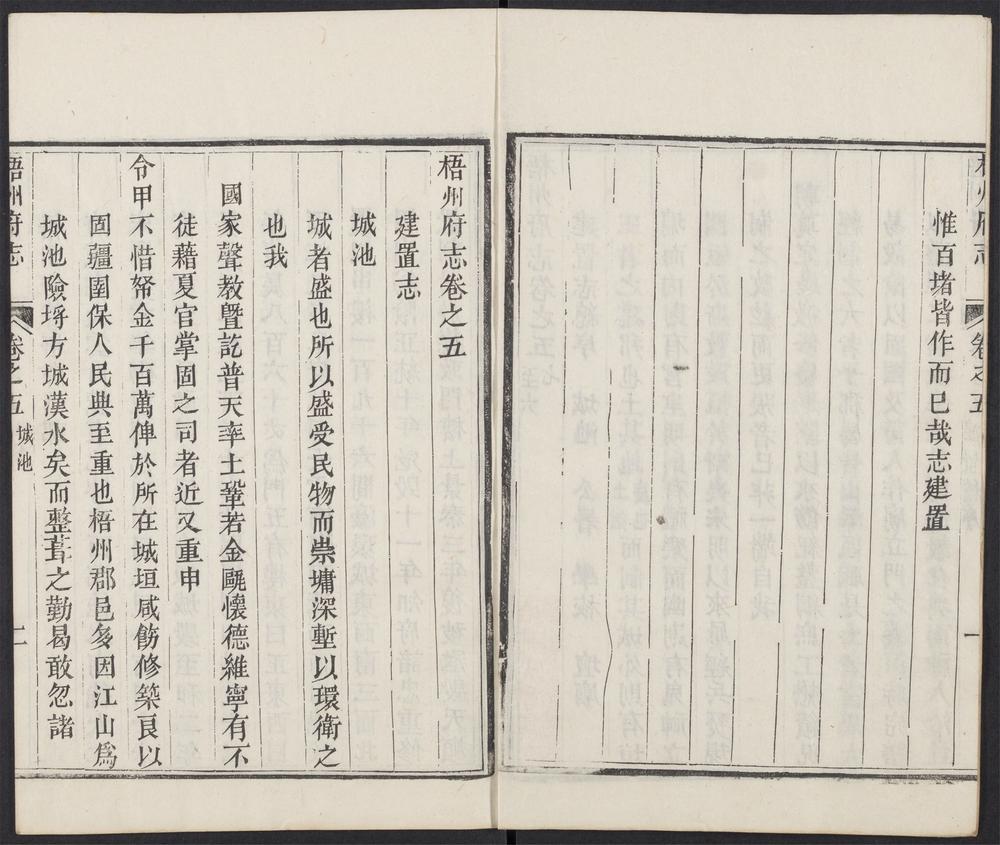 梧州府志
卷之五
一
惟百堵皆作而已哉志建置
梧州府志卷之五
建置志
城池
城者盛也所以盛受民物而崇墉深塹以環衛之
也我
國家聲教曁訖普天率土鞏若金甌懷德維寧有不
徒藉夏官掌固之司者近又重申
令甲不惜帑金千百萬俾於所在城垣咸飭修築良以
固疆圉保人民典至重也梧州郡邑多因江山爲
城池險埒方城漢水矣而整葺之勤曷敢忽諸
梧州府志
卷之五 城池
二